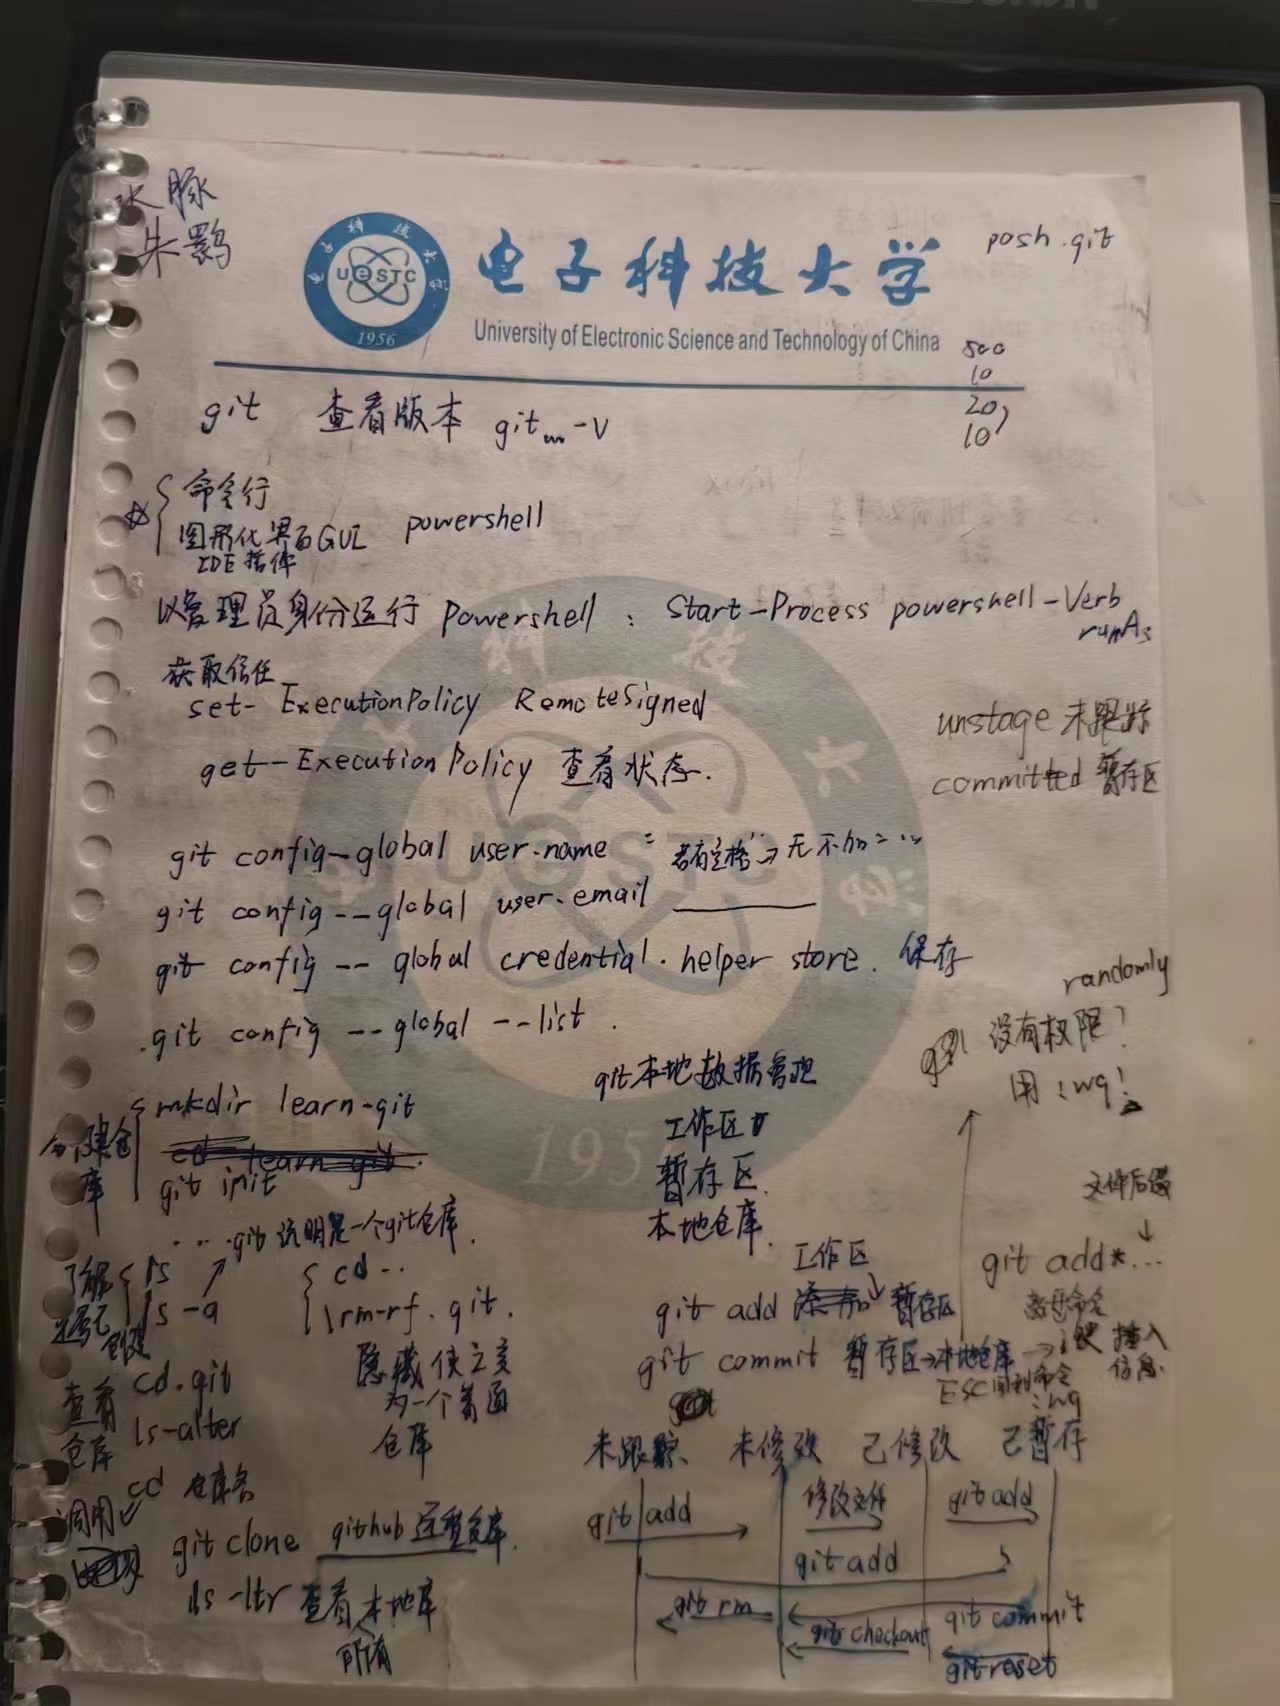 朱鹮
posh.git
电子科技大学
UESTC
1956
University of Electronic Science and Technology of China
500
10
20
10
git 查看版本 git -v
命令行
图形化界面GUI powershell
IDE插件
以管理员身份运行 powershell : Start-Process powershell -Verb
runAs
获取信任
set-ExecutionPolicy RemoteSigned
get-ExecutionPolicy 查看状态.
unstage 未跟踪
committed 暂存区
git config --global user.name 若有空格
git config --global user.email
git config -- global credential.helper store. 保存
git config --global --list.
randomly
没有权限?
用 :wq!
git本地数据管理
工作区
暂存区
本地仓库
创建仓库
mkdir learn-git
cd learn git
git init
.git 说明是一个git仓库.
了解
ls
ls -a
cd..
rm-rf .git.
隐藏 使之变
为一个普通
仓库
工作区
git add 添加 暂存区
git commit 暂存区→本地仓库
i键 插入
信息
ESC回到命令
:wq
文件后缀
git add *...
查看
仓库
cd .git
ls-alter
cd 仓库名
调用
git clone github远程仓库.
ls -ltr 查看本地库
所有
未跟踪 未修改 已修改 已暂存
git add 修改文件 git add
git add
git rm git commit
git checkout
git reset